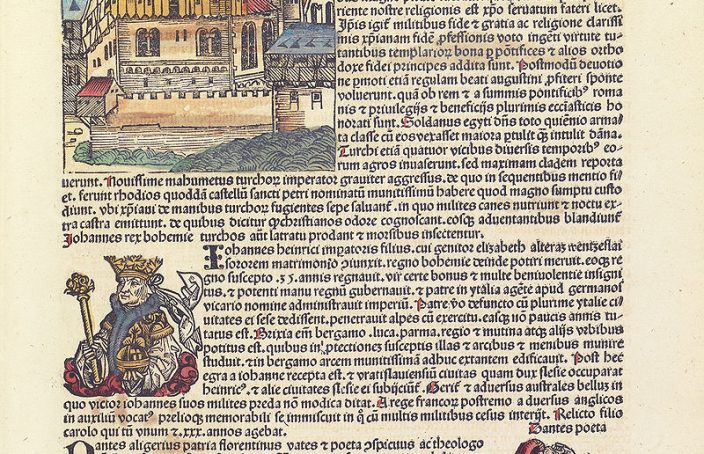 oriente nostre religionis est xp̄o seruatum fateri licet.
Ip̄is igit̄ militibus fide & gratia ac religione clariss
mis xp̄ianam fidē p̄fessionis voto ingēti virtute tu-
tantibus templarior̄ bona p̄ pōtifices & alios ortho
doxe fidei principes addita sunt. Postmodū deuotio
ne p̄moti etiā regulam beati augustini p̄fiteri sponte
voluerunt. quā ob rem & a summis pontificib' roma
nis & priuilegijs & beneficijs plurimis eccl̄iasticis ho
norati sunt. Soldanus egyti dn̄s toto quiēnio arma
ta classe cū eos vexasset maiora ptulit q̄ȝ intulit dāna.
Turchi etiā quatuor vicibus diuersis temporib' eo-
rum agros inuaserunt. sed maximam cladem reporta
uerunt. Nouissime mahumetus turchor̄ imperator grauiter aggressus. de quo in sequentibus mentio fi/
et. ferunt rhodios quoddā castellū sancti petri nominatū munitissimū habere quod magno sumptu custo
diunt. vbi xp̄iani de manibus turchor̄ fugientes sepe saluant̄. in quo milites canes nutriunt & noctu ex
tra castra emittunt. de quibus dicitur q̄ christianos odore cognoscant. eosq̄ȝ aduentantibus blandiunt̄
Johannes rex bohemie turchos aūt latratu prodant & morsibus insectentur.
Johannes heinrici imp̄atoris filius. cui genitor elizabeth alterā wentzeslai
sororem matrimonio ꝯiunxit. regno bohemie deinde potiri meruit. eoq̄ȝ re
gno suscepto .35. annis regnauit. vir certe bonus & multe beniuolentie insigni
tus. & potenti manu regnū gubernauit. & patre in ytalia agēte apud germanos
vicario nomine administrauit imperiū. Patre v̄o defuncto cū plurime ytalie ci
uitates ei sese dedissent. penetrauit alpes cū exercitu. easq̄ȝ nō paucis annis tu
tatus est. Brixia em̄ bergamo. luca. parma. regio & mutina atq̄ȝ alijs vrbibus
potitus est. quibus in p̄tectionē susceptis illas & arcibus & menibus munire
studuit. & in bergamo arcem munitissimā adhuc extantem edificauit. Post hec
egra a iohanne recepta est. & vratislauiensiū ciuitas quam dux slesie occupărat
heinric'. & alie ciuitates slesie ei subijciunt̄. Gerit̄ & aduersus australes bellū in
quo victor iohannes suos milites p̄eda nō modica ditat. A rege francor̄ postremo a aduersus anglicos
in auxiliū vocat' prelioq̄ȝ memorabili se immiscuit in q̄ cū multis militibus cesus interijt. Relicto filio
carolo qui tū vnum & .xxx. annos agebat. Dantes poeta
Dantes aligerius patria florentinus vates & poeta ꝯspicuus ac theologo